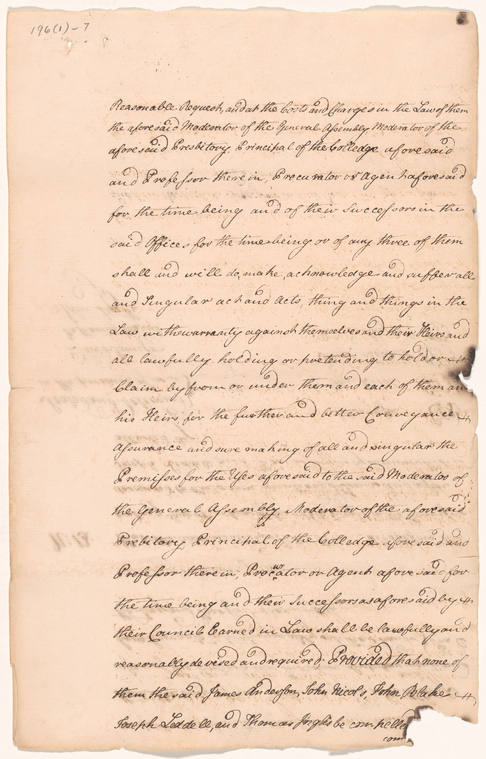 196(1)-7
Reasonable Request, and at the Costs and Charges in the Law of them
the aforesaid Moderator of the General Assembly Moderator of the
aforesaid Presbitory Principal of the Colledge aforesaid
and Professor therein, Procurator or Agent aforesaid
for the time being and of their Successors in the
said Offices for the time being or of any three of them
shall and will do, make, acknowledge and suffer all
and Singular act and Acts, thing and things in the
Law with warranty against themselves and their Heirs and
all lawfully holding or pretending to hold or
Claim by from or under them and each of them and
his Heirs for the further and better Conveyance
Assurance and sure making of all and singular the
Premisses for the Uses aforesaid to the said Moderator of
the General Assembly Moderator of the aforesaid
Prebitory Principal of the Colledge aforesaid and
Professor therein, Procurator or Agent aforesaid for
the time being and their Successors as aforesaid by
their Council Learned in Law shall be lawfully and
reasonably devised and required. Provided that none of
them the said James Anderson, John Nicols, John
Joseph Leddell, and Thomas Inglis be compelled
com